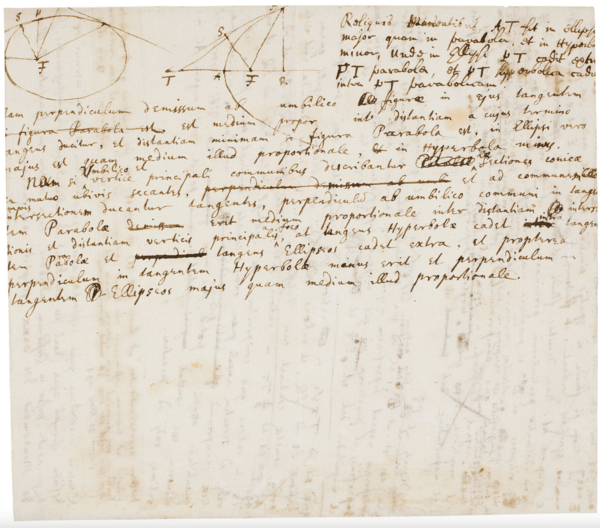 S P
F
S
T A F R
Reliquis AT fit in Ellipsi
major quam in parabola, et in Hyperbola
minor. Unde in Ellipsi PT cadet extra
PT parabola, et PT Hyperbolica cadet
intra PT parabolicam.
perpendiculum demissum ab umbilico figuræ in ejus tangentem
si figura Parabola est est medium propor inter distantiam a cujus termino
tangens ducitur, et distantiam minimam si figura Parabola est, in Ellipsi vero
majus est quam medium illud proportionale, et in Hyperbola minus.
Nam si Umbilico et vertice principali communibus describantur sectiones conicæ
mutuo ubivis secantes, perpendiculum demissum ab et ad communem
intersectionem ducantur tangentes, perpendiculum ab umbilico communi in
Parabolæ erit medium proportionale inter distantiam
et distantiam verticis principalis at tangens Hyperbolæ cadet intra
Parabolæ et tangens Ellipseos cadet extra, et propterea
perpendiculum in tangentem Hyperbolæ minus erit et perpendiculum in
tangentem Ellipseos majus quam medium illud proportionale.